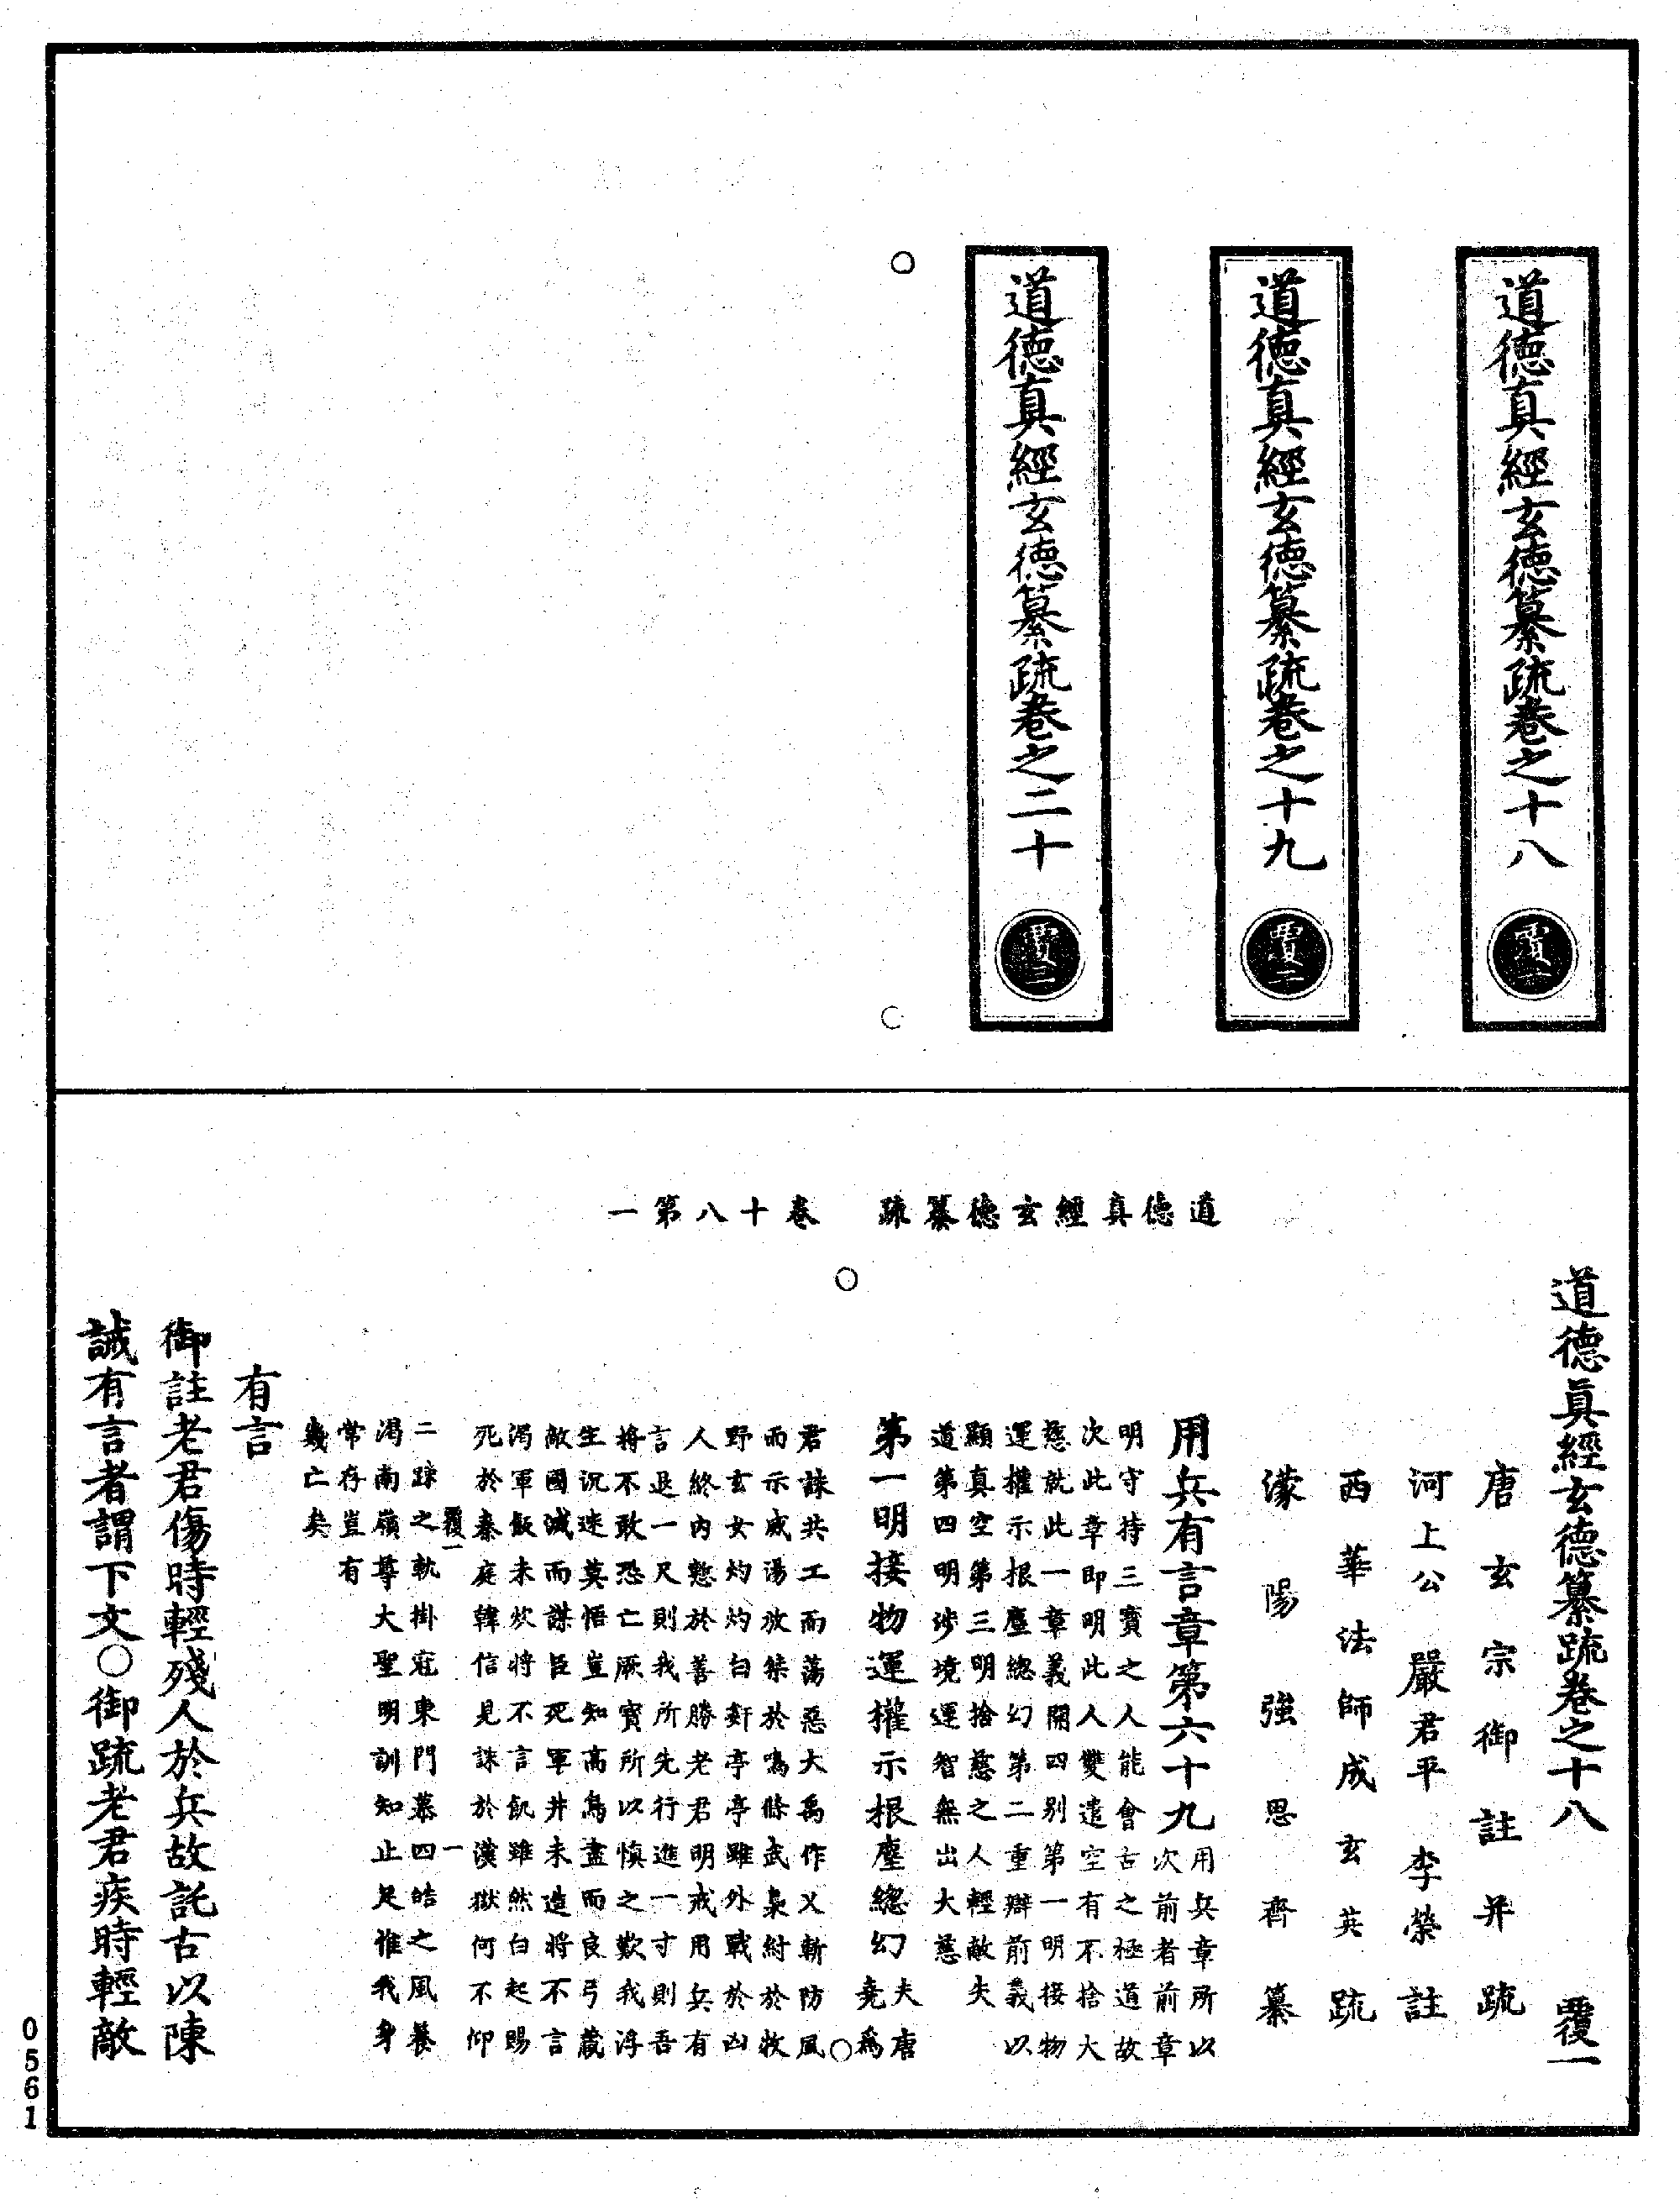 道德真經玄德纂疏卷之十八
道德真經玄德纂疏卷之十九
道德真經玄德纂疏卷之二十
道德真經玄德纂疏　卷十八第一
道德眞經玄德纂疏卷之十八　覆一
唐玄宗御註并疏
河上公　嚴君平　李榮註
西華法師成玄英疏
濛陽強思齊纂
用兵有言章第六十九
用兵章所以
次前者前章
明守持三寶之人能會古之極道故
次此章即明此人雙遣空有不捨大
慈就此一章義開四別第一明接物
運權示根塵總幻第二重辯前義以
顯真空第三明捨慈之人輕敵失
道第四明涉境運智無出大慈
第一明接物運權示根塵總幻
夫唐
堯爲
君誅共工而蕩惡大禹作乂斬防風
而示威湯放桀於鳴條武梟紂於牧
野玄女灼灼白蔪亭亭雖外戰於凶
人終內慙於善勝老君明戒用兵有
言退一尺則我所先行進一寸則吾
將不敢恐亡厥寶所以慎之歎我浮
生沉迷莫悟豈知高鳥盡而良弓藏
敵國滅而謀臣死軍井未造將不言
渴軍飯未炊將不言飢雖然白起賜
死於秦庭韓信見誅於漢獄何不仰
覆一　一
二踈之軌掛冠東門慕四皓之風養
渴南嶺尊大聖明訓知止足惟我身
常存豈有
幾亡矣
有言
御註老君傷時輕殘人於兵故託古以陳
誡有言者謂下文○御疏老君疾時輕敵
0561